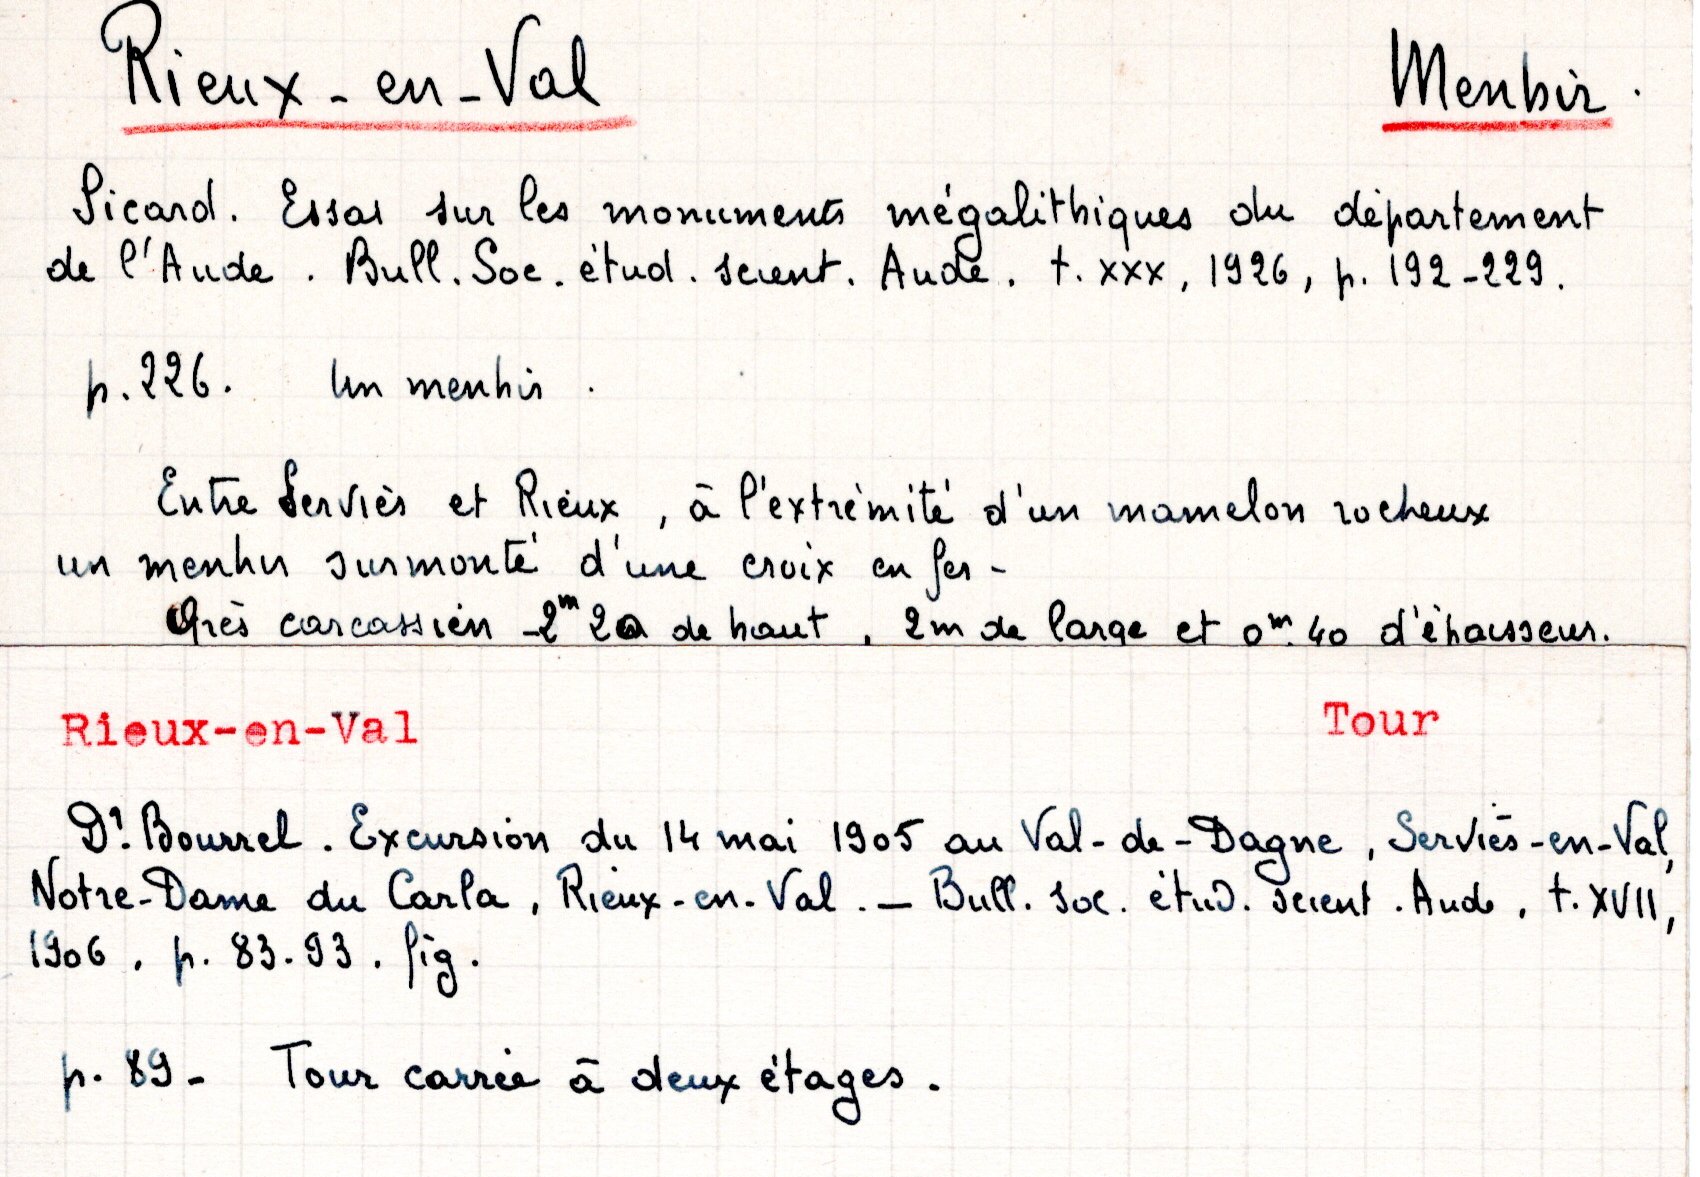 Rieux-en-Val Menhir.
Sicard. Essai sur les monuments mégalithiques du département
de l'Aude. Bull. Soc. étud. scient. Aude. t. XXX, 1926, p. 192-229.
p. 226. Un menhir.
Entre Serviès et Rieux, à l'extrémité d'un mamelon rocheux
un menhir surmonté d'une croix en fer-
Grès carcassien - 2m 20 de haut, 2m de large et 0m.40 d'épaisseur.
Rieux-en-Val Tour
Dr. Bourrel. Excursion du 14 mai 1905 au Val-de-Dagne, Serviès-en-Val,
Notre-Dame du Carla, Rieux-en-Val. — Bull. soc. étud. scient. Aude, t. XVII,
1906, p. 83-93. fig.
p. 89- Tour carrée à deux étages.